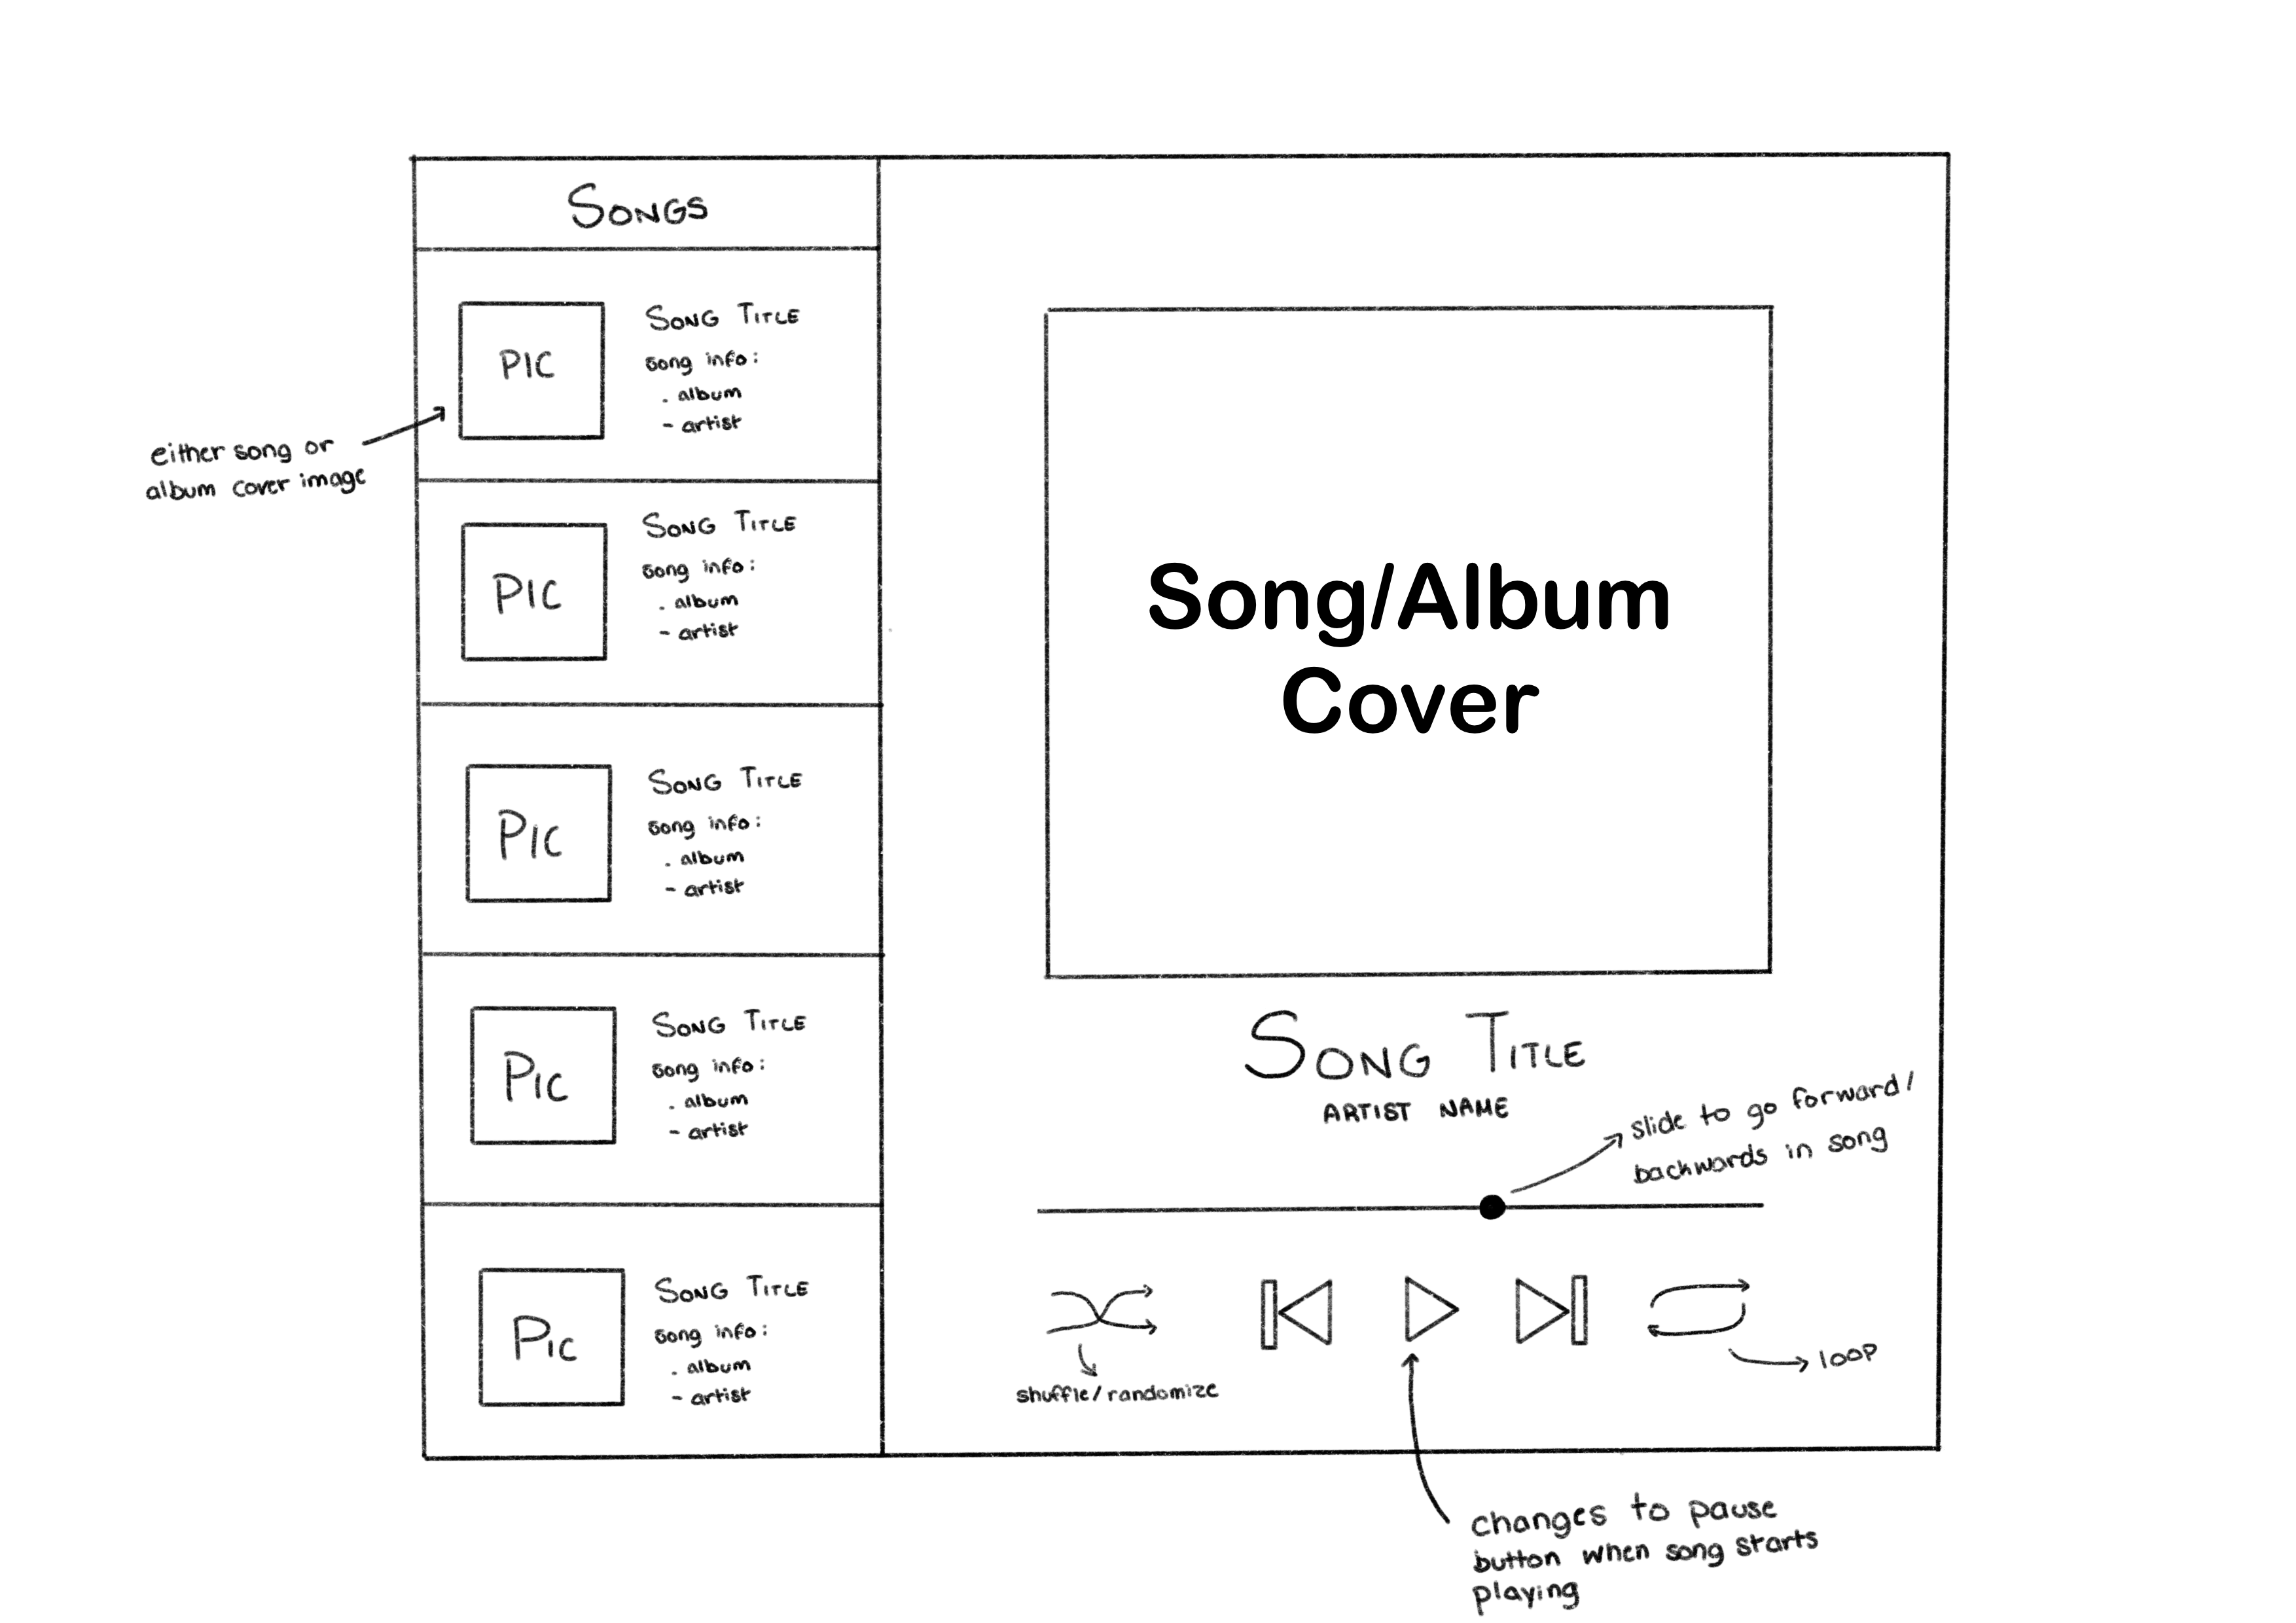 SONGS
PIC
SONG TITLE
song info:
. album
- artist
either song or
album cover image
PIC
SONG TITLE
song info:
. album
- artist
PIC
SONG TITLE
song info:
. album
- artist
PIC
SONG TITLE
song info:
. album
- artist
PIC
SONG TITLE
song info:
. album
- artist
Song/Album
Cover
SONG TITLE
ARTIST NAME
slide to go forward/
backwards in song
shuffle/randomize
loop
changes to pause
button when song starts
playing